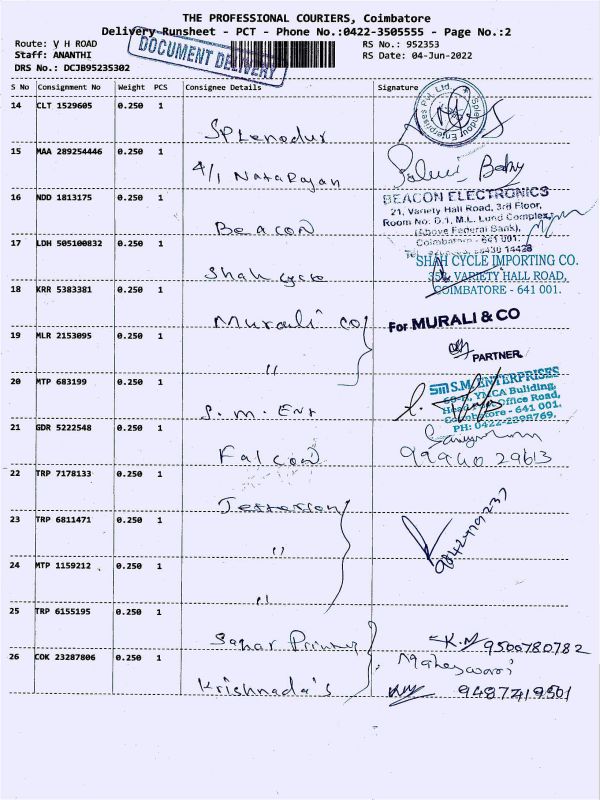 THE PROFESSIONAL COURIERS, Coimbatore
Delivery Runsheet - PCT - Phone No.:0422-3505555 - Page No.:2
Route: V H ROAD
RS No.: 952353
Staff: ANANTHI
RS Date: 04-Jun-2022
DRS No.: DCJB95235302
DOCUMENT DELIVERY
S No Consignment No Weight PCS Consignee Details Signature
14 CLT 1529605 0.250 1
Splendour Enterprises Pvt. Ltd.
Splendur
15 MAA 289254446 0.250 1
4/1 Natarajan
Baby
16 NDD 1813175 0.250 1
Beacon
BEACON ELECTRONICS
21, Variety Hall Road, 3rd Floor,
Room No: D.1, M.L. Lund Complex,
(Above Federal Bank),
Coimbatore - 641 001.
17 LDH 505100832 0.250 1
Shah cycle
SHAH CYCLE IMPORTING CO.
352, VARIETY HALL ROAD,
COIMBATORE - 641 001.
18 KRR 5383381 0.250 1
Murali co
For MURALI & CO
PARTNER.
19 MLR 2153095 0.250 1
"
20 MTP 683199 0.250 1
S.M. Ent
Sm S.M. ENTERPRISES
YMCA Building,
Head Post Office Road,
Coimbatore - 641 001.
PH: 0422-2398769.
21 GDR 5222548 0.250 1
Falcon
99940 29613
22 TRP 7178133 0.250 1
Jefferson
23 TRP 6811471 0.250 1
"
9842479237
24 MTP 1159212 0.250 1
"
25 TRP 6155195 0.250 1
Sagar Printing
K.M 9500780782
26 COK 23287806 0.250 1
Krishnada's
Maheswari
9487419501